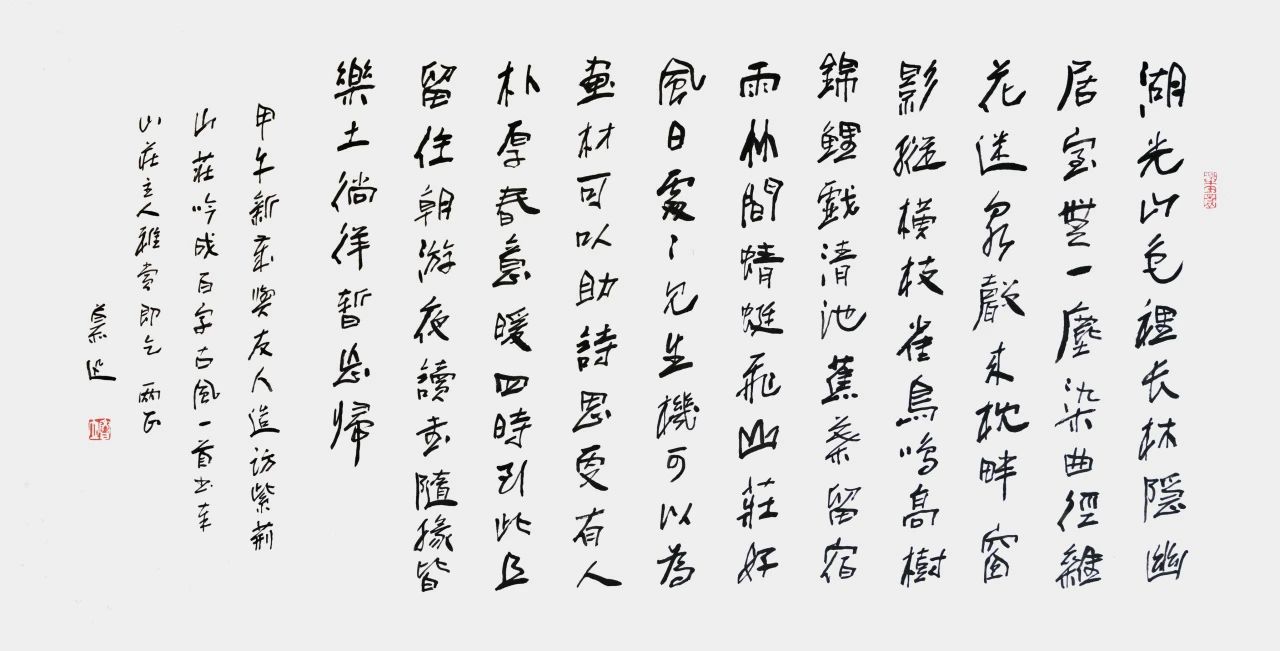 湖光山色裡長林隱幽
居室無一塵染曲徑雜
花迷泉聲來枕畔窗
影搖橫枝雀鳥鳴高樹
錦鯉戲清池蕉葉留宿
雨林間蜻蜓飛山莊好
風日處〻見生機可以為
畫材可以助詩思更有人
朴厚春意暖四時到此且
留住朝游夜讀書隨緣皆
樂土徜徉暫忘歸
甲午新歲與友人造访紫荊
山莊吟成百字古風一首書奉
山莊主人雅賞即乞兩正